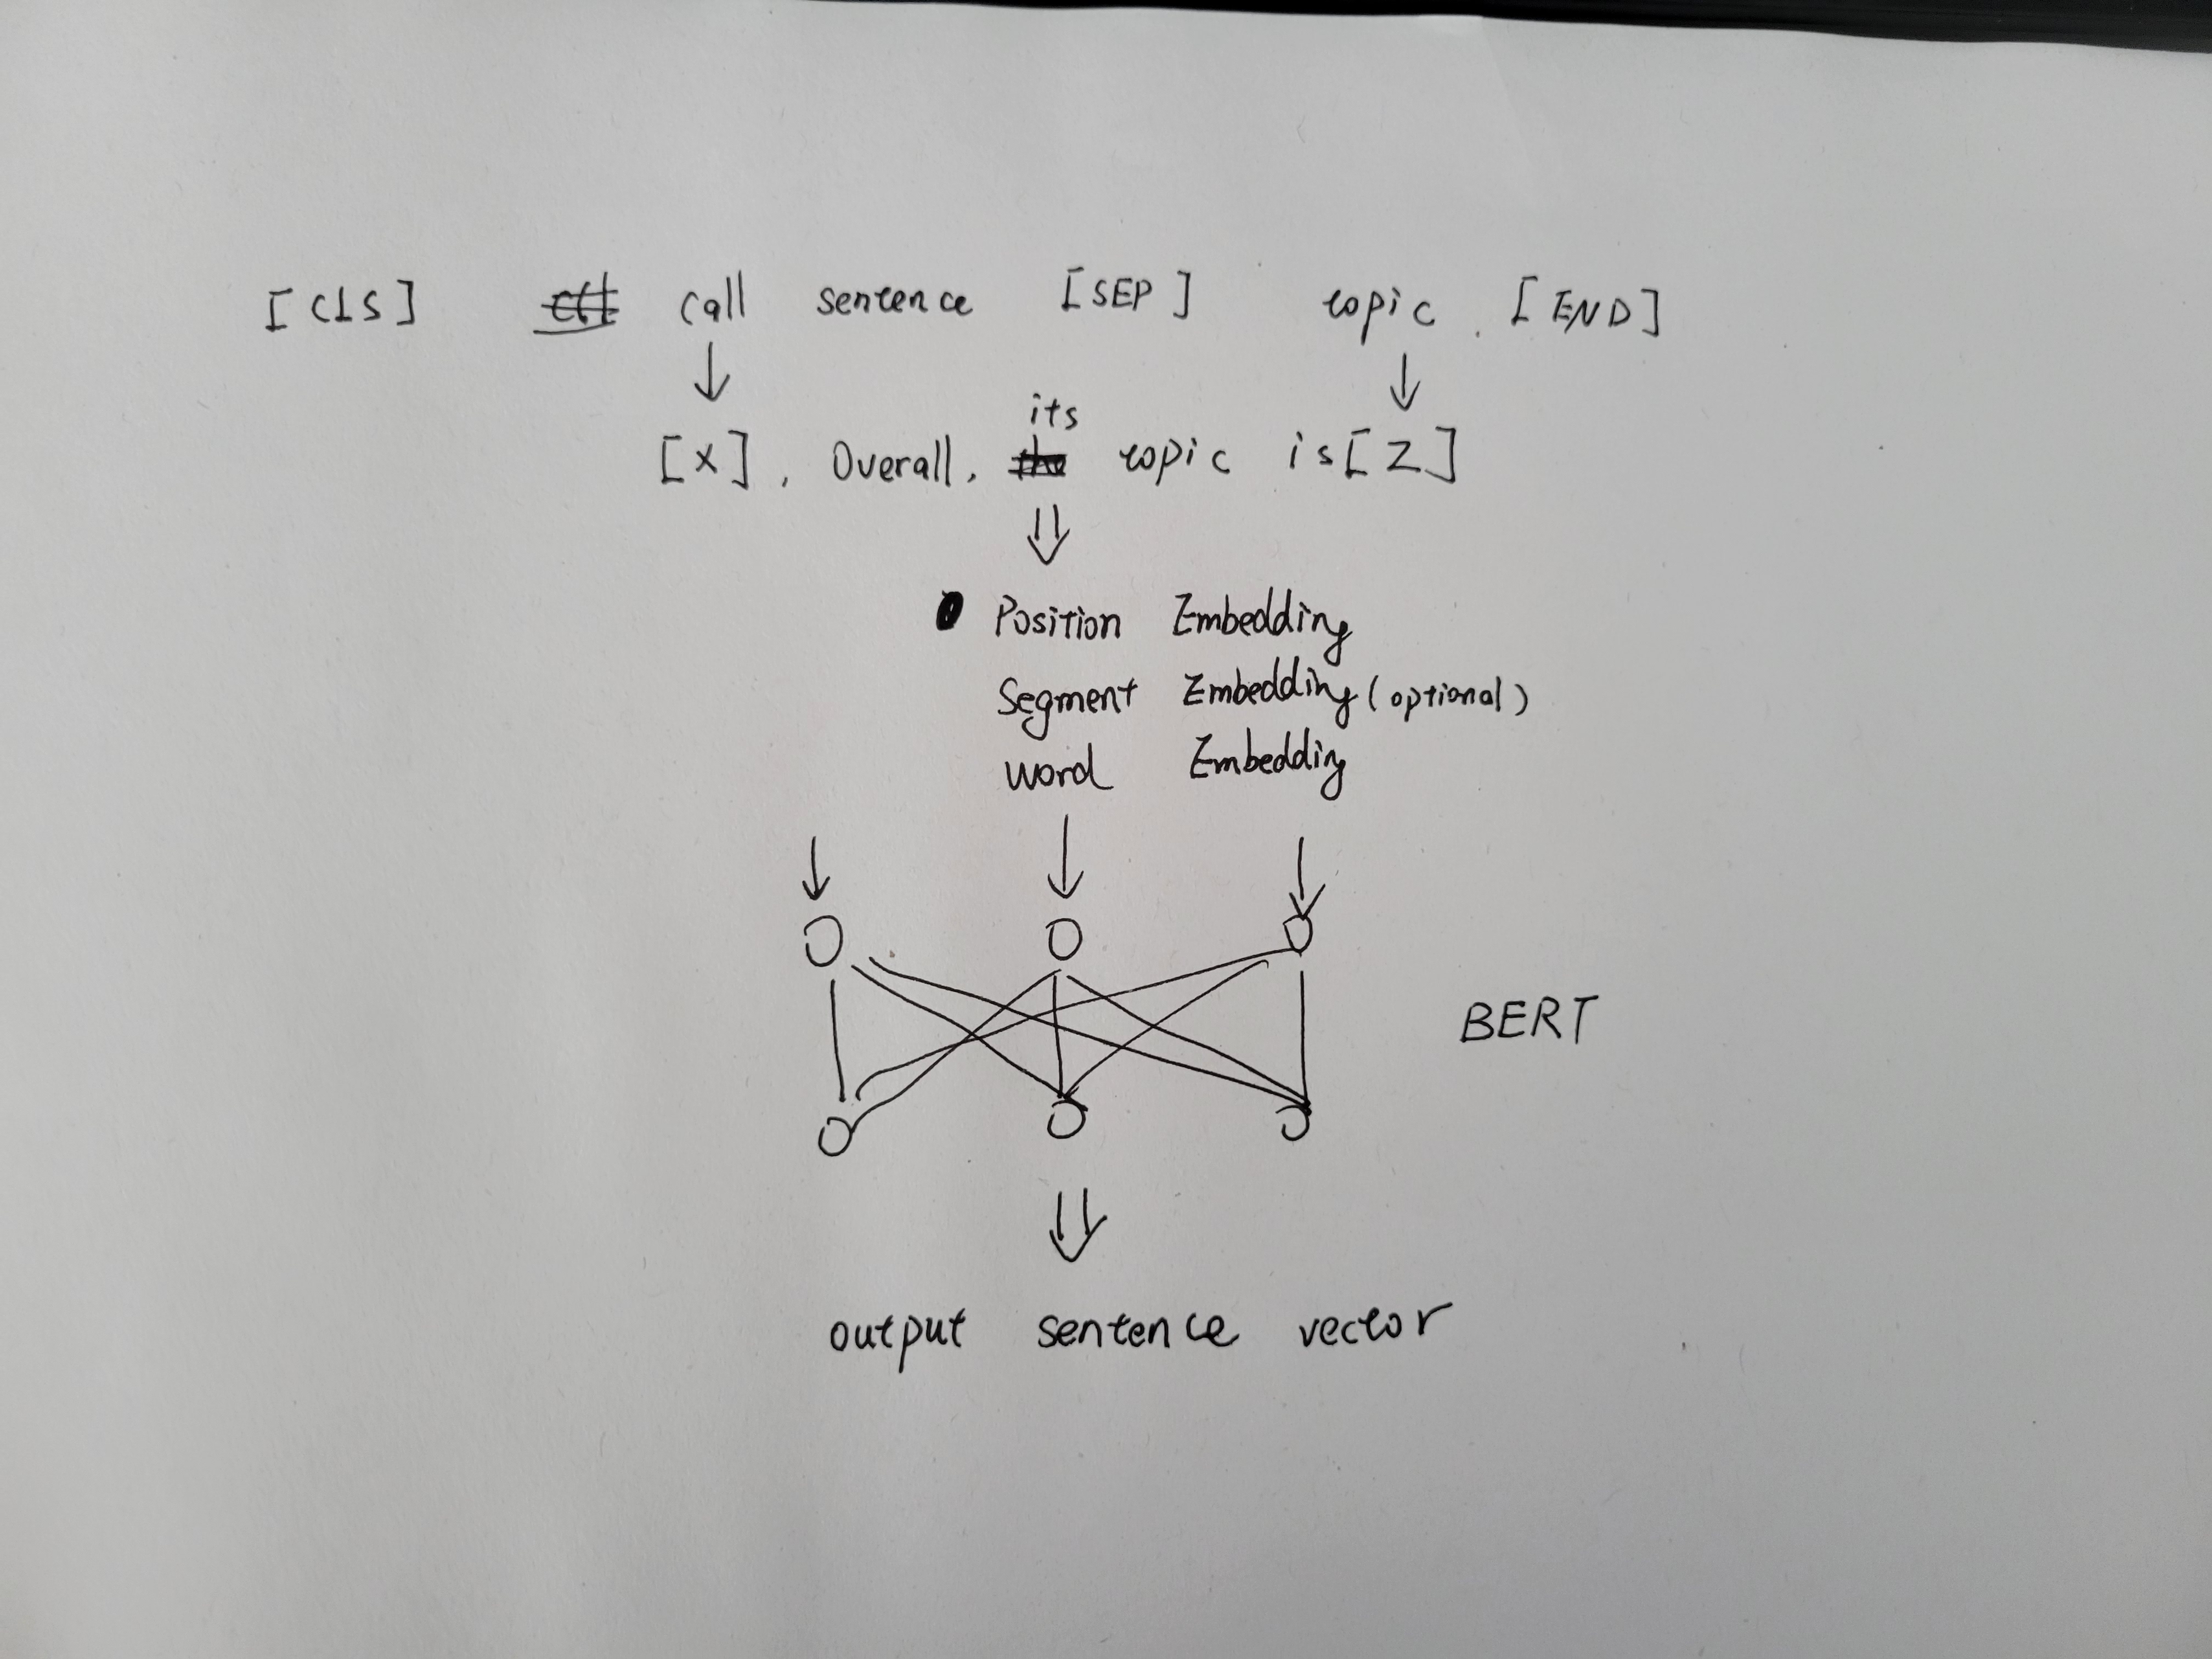 [CLS] call sentence [SEP] topic. [END]
its
[X], Overall, topic is [Z]
Position Embedding
Segment Embedding (optional)
word Embedding
BERT
output sentence vector